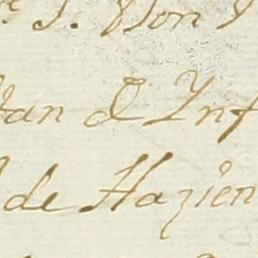 S. Don
an d Inf
de Hazien